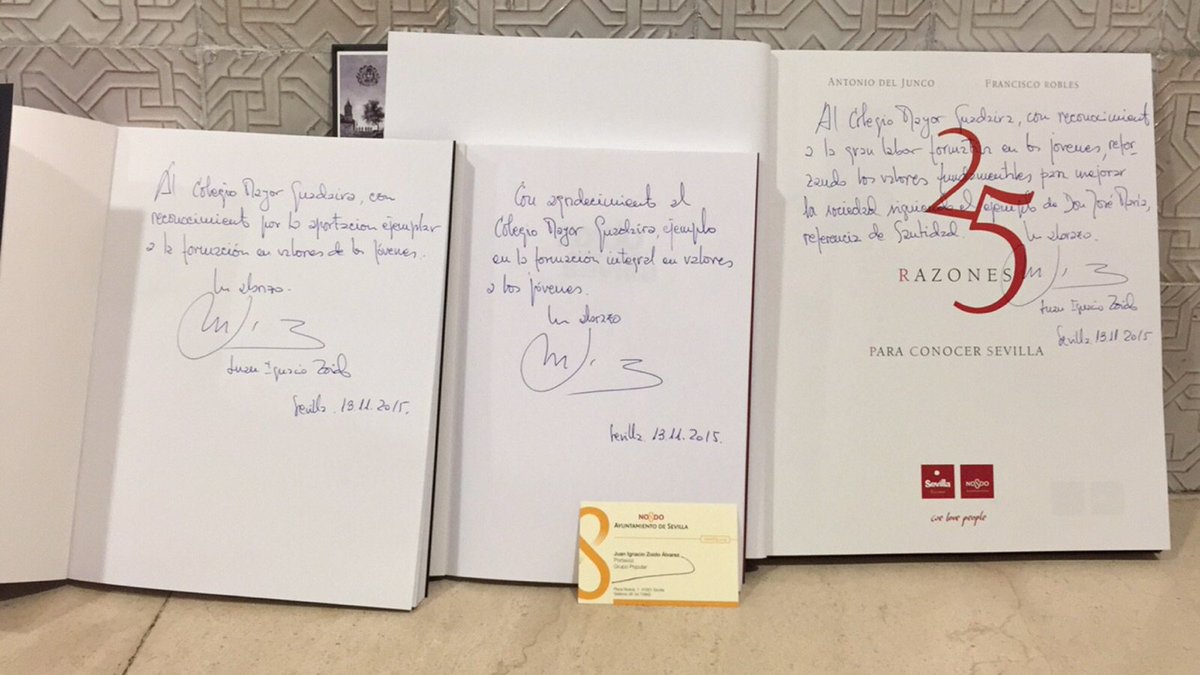 Al Colegio Mayor Guadaira, con
reconocimiento por la aportación ejemplar
a la formación en valores de los jóvenes.
Un abrazo.
Juan Ignacio Zoido
Sevilla. 13.11.2015.
Con agradecimiento al
Colegio Mayor Guadaira, ejemplo
en la formación integral en valores
a los jóvenes.
Un abrazo
Sevilla. 13.11.2015.
NO8DO
AYUNTAMIENTO DE SEVILLA
Juan Ignacio Zoido Álvarez
Portavoz
Grupo Popular
ANTONIO DEL JUNCO FRANCISCO ROBLES
Al Colegio Mayor Guadaira, con reconocimiento
a la gran labor formativa en los jóvenes, refor-
zando los valores fundamentales para mejorar
la sociedad siguiendo el ejemplo de Don José María,
referencia de Santidad. Un abrazo.
25
RAZONES
Juan Ignacio Zoido
Sevilla 13.11.2015
PARA CONOCER SEVILLA
Sevilla NO8DO
we love people